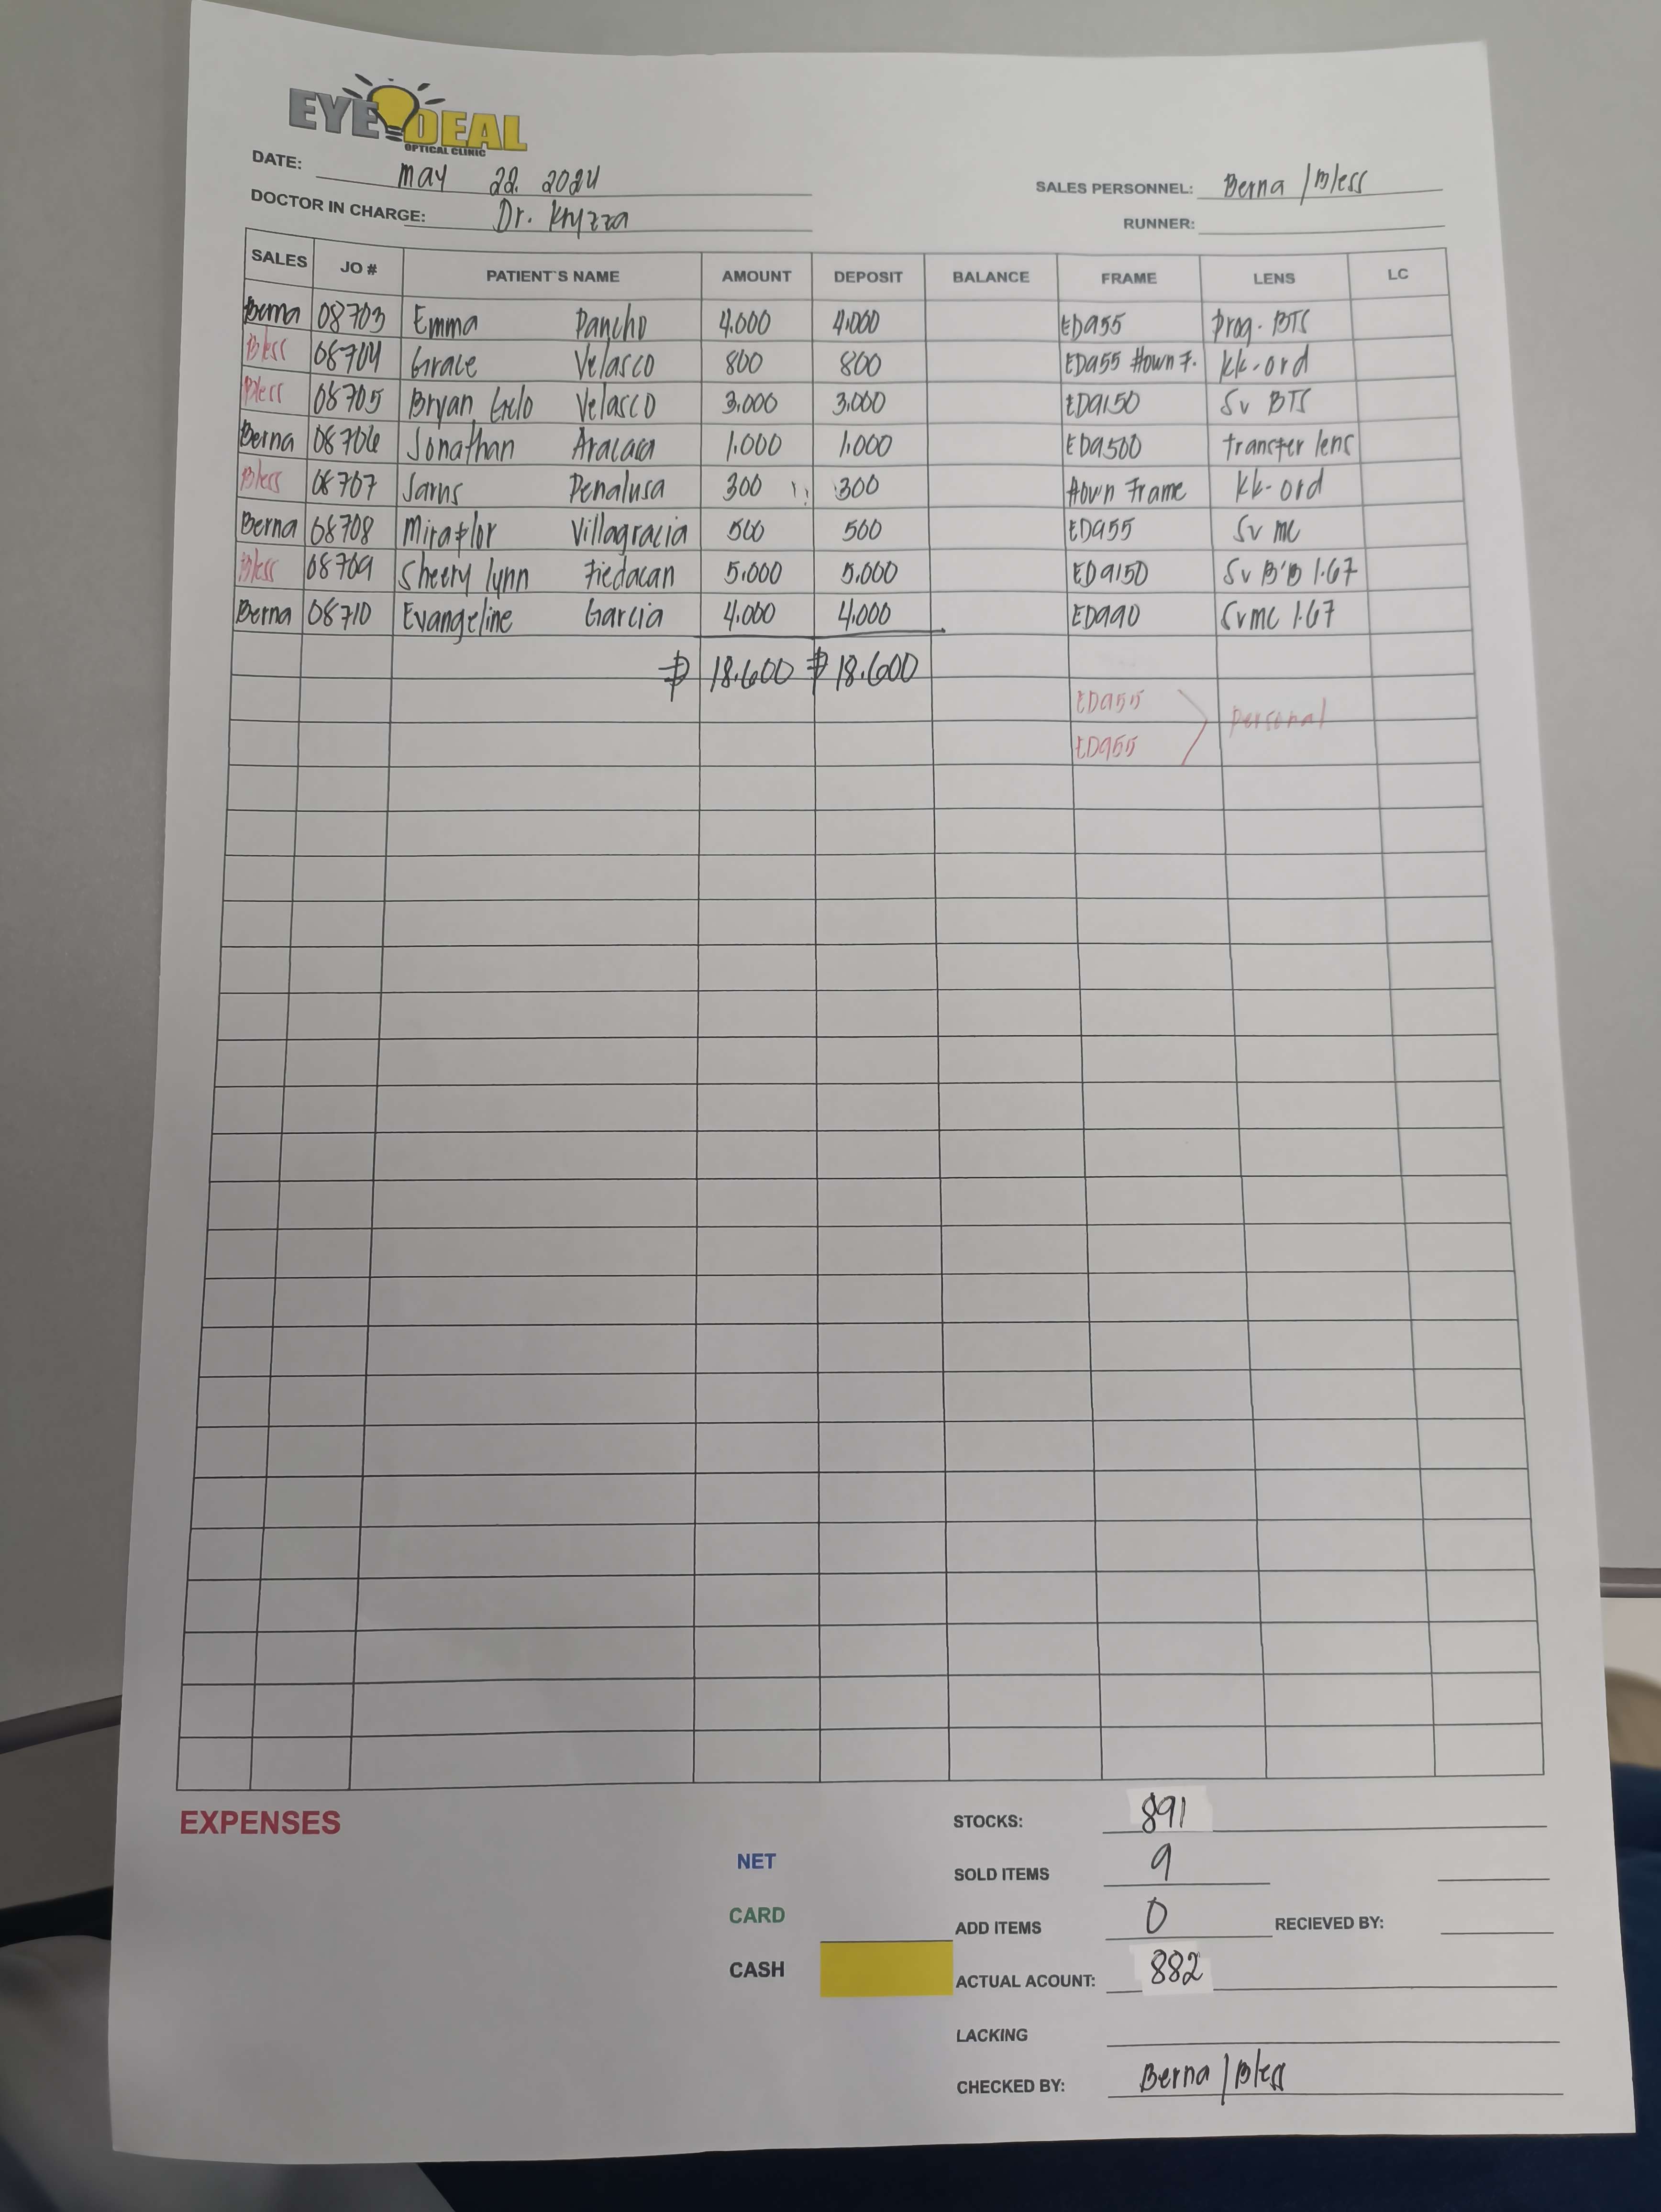 EYE DEAL
OPTICAL CLINIC
DATE: May 22. 2024
SALES PERSONNEL: Berna / Bless
DOCTOR IN CHARGE: Dr. Kryzza
RUNNER:
SALES JO # PATIENT'S NAME AMOUNT DEPOSIT BALANCE FRAME LENS LC
Berna 08703 Emma Pancho 4.000 4.000 ED955 Prog. BTS
Bless 08704 Grace Velasco 800 800 ED955 Hown F. kk-ord
Bless 08705 Bryan Velasco 3.000 3.000 ED9150 Sv BTS
Berna 08706 Jonathan 1.000 1.000 ED9500 transfer lens
Bless 08707 Penalusa 300 300 Hown Frame kk-ord
Berna 08708 Miraflor Villagracia 500 500 ED955 Sv mc
Bless 08709 Sheery lynn Fiedacan 5.000 5.000 ED9150 Sv B'B 1.67
Berna 08710 Evangeline Garcia 4.000 4.000 ED990 Sv mc 1.67
₱ 18.600 ₱ 18.600
ED955
Personal
ED955
EXPENSES
STOCKS: 891
NET
SOLD ITEMS 9
CARD
ADD ITEMS 0 RECIEVED BY:
CASH
ACTUAL ACOUNT: 882
LACKING
CHECKED BY: Berna / Bless